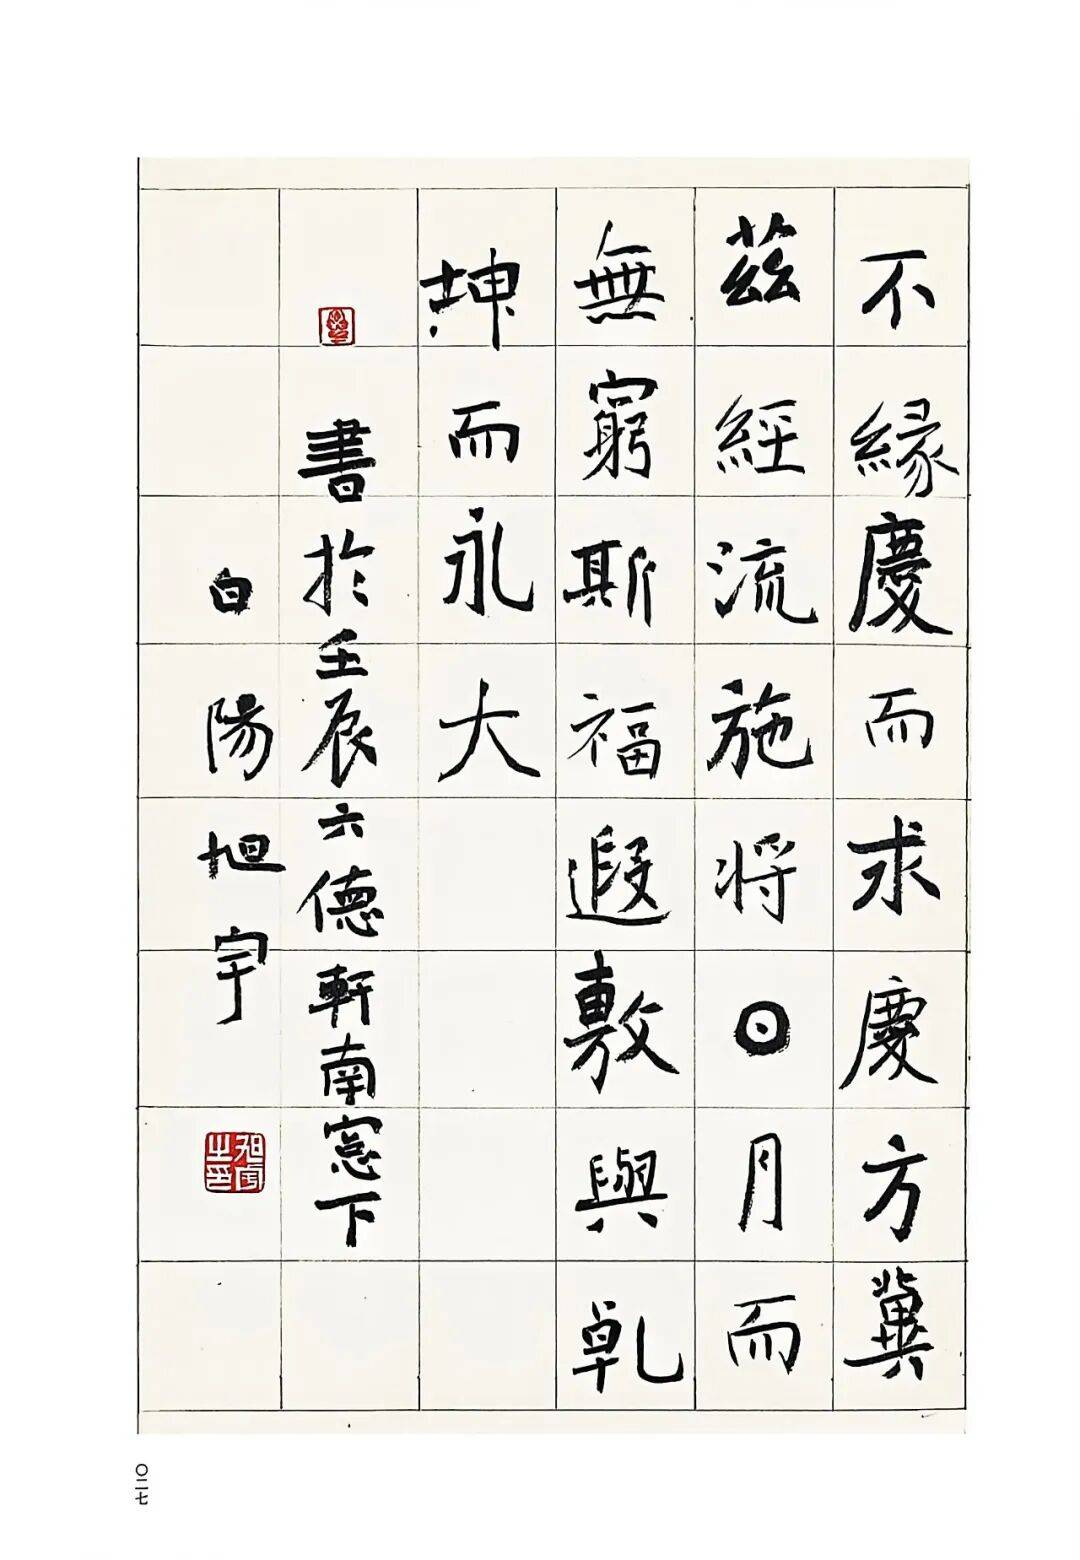 不緣慶而求慶方冀
茲經流施將日月而
無窮斯福遐敷與乹
坤而永大
書於壬辰六德軒南窓下
白陽旭宇
旭宇之印
〇二七